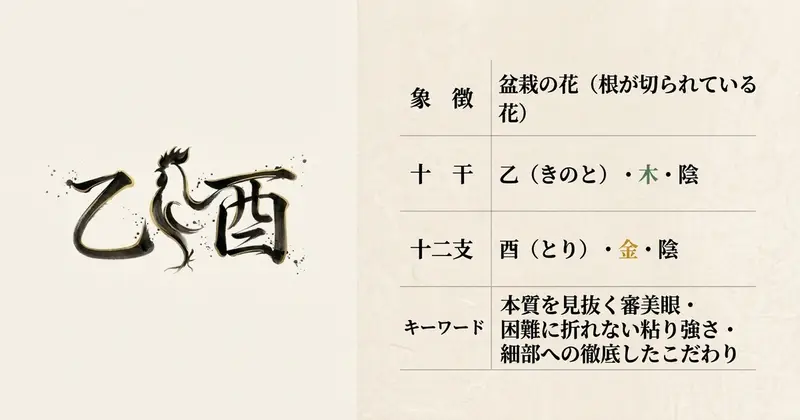 乙酉
象 徴
盆栽の花（根が切られている
花）
十 干
乙（きのと）・木・陰
十二支
酉（とり）・金・陰
キーワード
本質を見抜く審美眼・
困難に折れない粘り強さ・
細部への徹底したこだわり